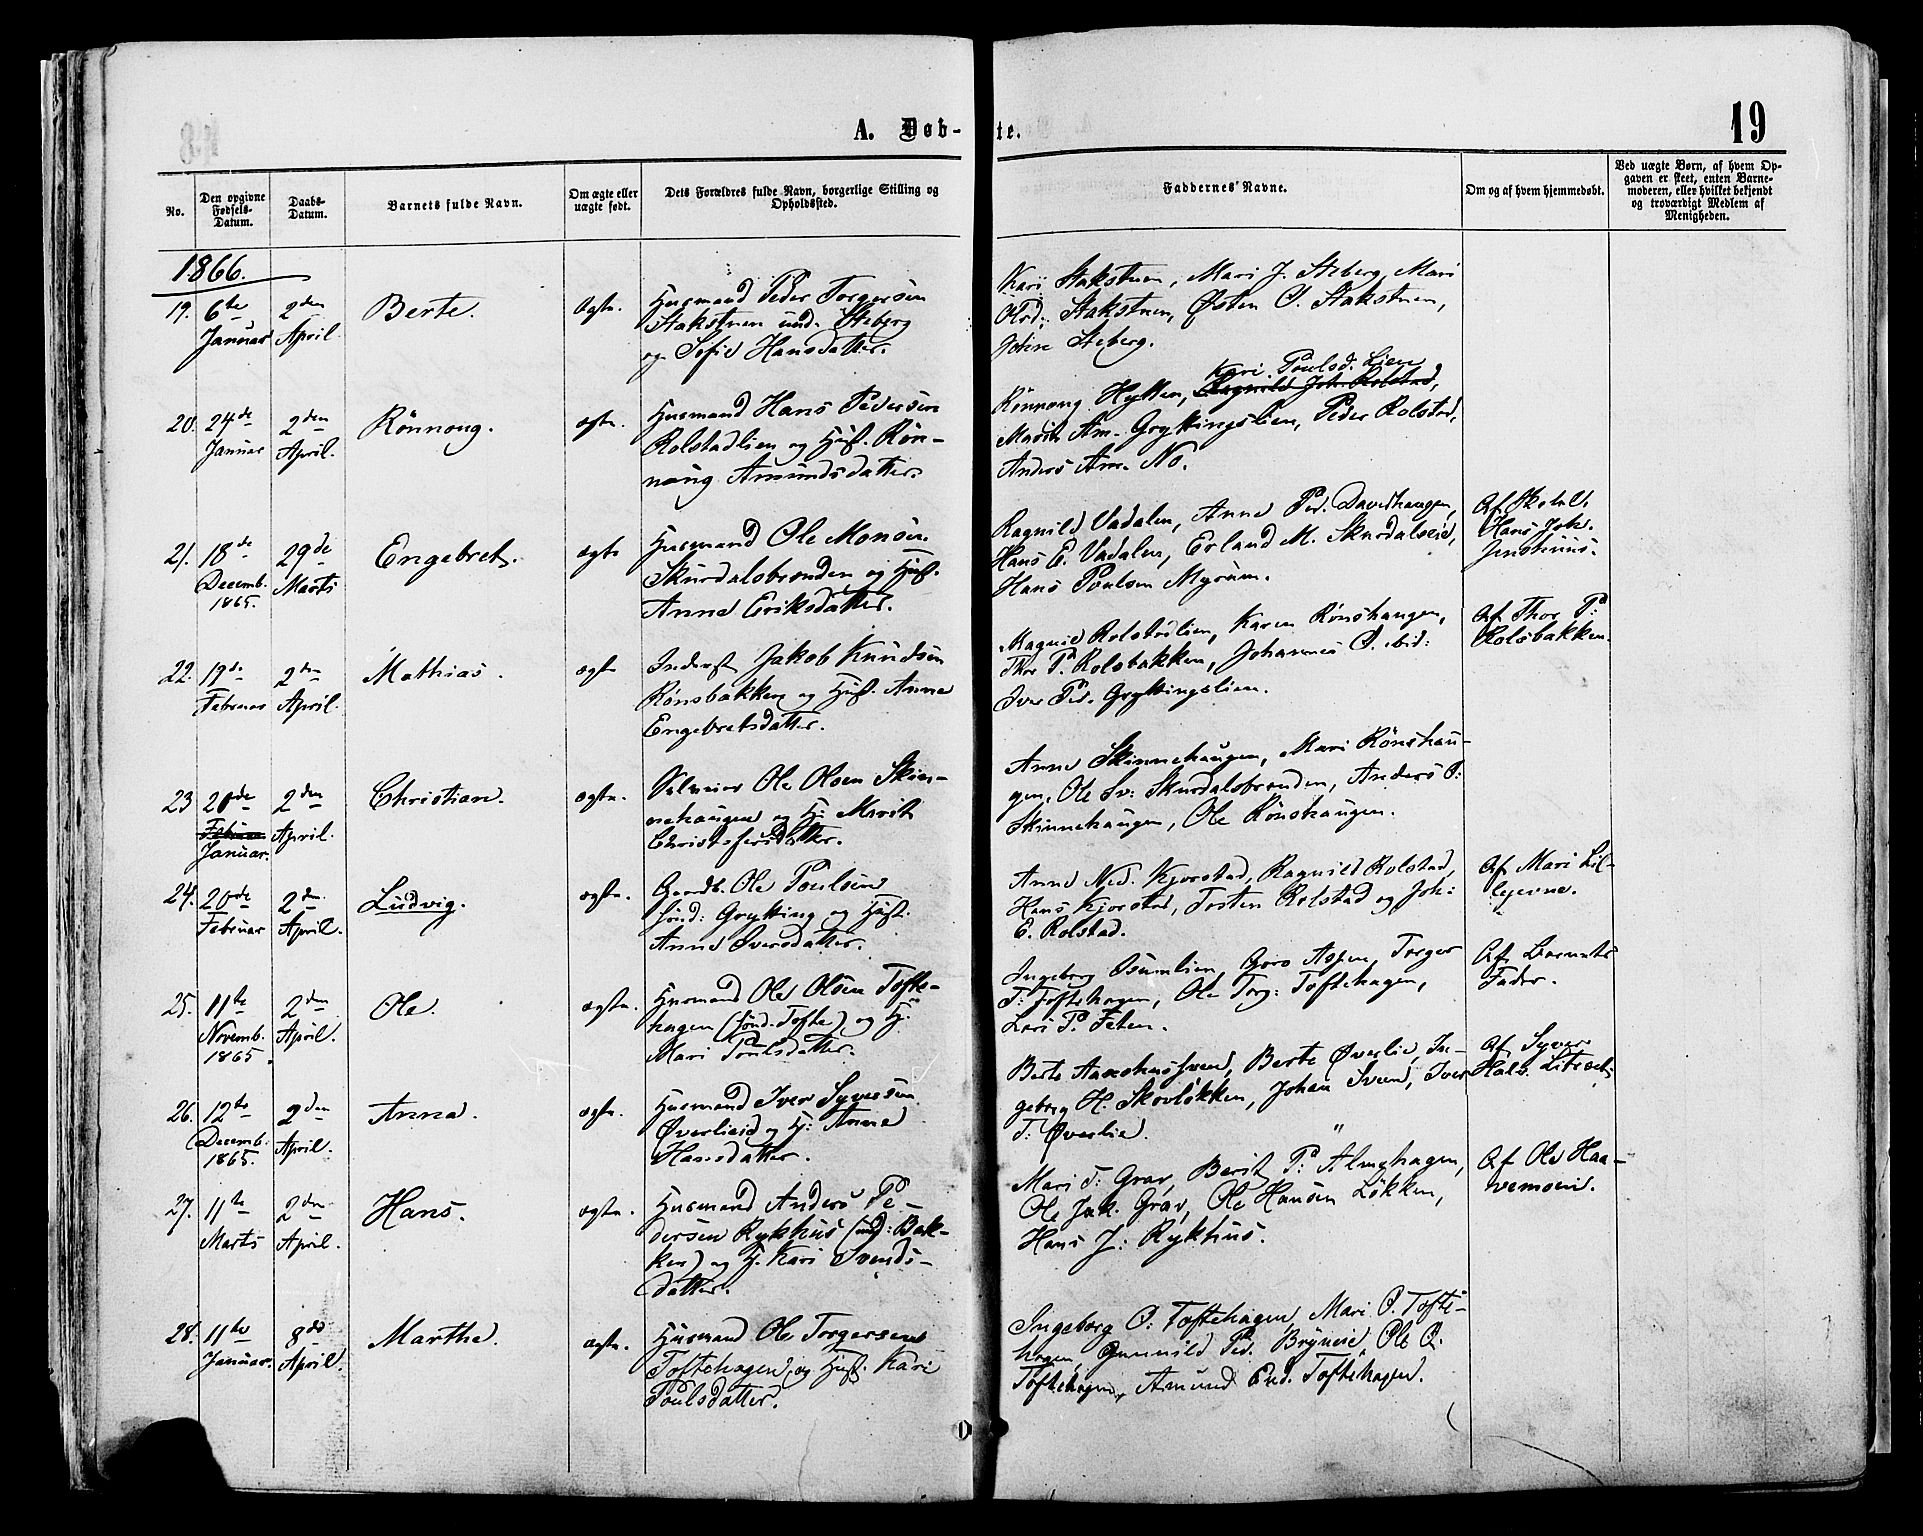 A. Døb-
te.
19
No.
Den opgivne Fødsels-Datum.
Daabs-Datum.
Barnets fulde Navn.
Om ægte eller uægte født.
Dets Forældres fulde Navn, borgerlige Stilling og Opholdssted.
Faddernes Navne.
Om og af hvem hjemmedøbt.
Ved uægte Børn, af hvem Op-
gaven er skeet, enten Barne-
moderen, eller hvilket bekjendt
og troværdigt Medlem af
Menigheden.
1866.
19. 6te Januar 2den April. Berte. ægte.
Husmand Peder Torgersen
Stakstuen und. Steberg
og Sofie Hansdatter.
Kari Stakstuen, Mari J. Steberg, Mari
Stakstuen, Østen O. Stakstuen,
Steberg.
20. 24de Januar 2den April. Rönnoug. ægte.
Husmand Hans Pedersen
Rolstadlien og Hust. Rön-
noug Amundsdatter.
Kari Poulsd. Lien
Rönnoug Hytten, Ragnild Joh. Rolstad,
Marit Am. Gryttingslien, Peder Rolstad,
Anders Am. No.
21. 18de Decemb. 1865. 29de Marts Engebret. ægte
Husmand Ole Monsen
Skurdalsbrenden og Hust.
Anne Eriksdatter.
Ragnild Vadalen, Anne Ped. Davidhaugen,
Hans E. Vadalen, Erland M. Skurdalseie,
Hans Poulsen Myrum.
Af Skolel.
Hans Joh.
Jenshuus.
22. 19de Februar 2den April. Mathias. ægte
Inderst Jakob Knudsen
Rönsbakken og Hust. Anne
Engebretsdatter.
Magnild Rolstadlien, Karen Rönshaugen,
Thor P. Rolsbakken, Johannes O. ibid:
Iver Ped. Gryttingslien.
Af Thor P:
Rolsbakken.
23 20de Februar Januar. 2den April. Christian. ægte.
Ole Olsen Skin-
nehaugen og H: Marit
Christofersdatter.
Anne Skinnehaugen, Mari Rönshau-
gen, Ole Sv: Skurdalsbrenden, Anders O:
Skinnehaugen, Ole Rönshaugen.
24. 20de Februar 2den April. Ludvig. ægte.
Gaardb. Ole Poulsen
Grytting og Hust.
Anne Iversdatter.
Anne Ned. Kjorstad, Ragnild Rolstad,
Hans Kjorstad, Torsten Rolstad og Joh:
E. Rolstad.
Af Mari Lil-
legerne.
25. 11te Novemb. 1865. 2den April. Ole. ægte.
Husmand Ole Olsen Tofte-
hagen (und. Tofte) og H:
Mari Poulsdatter.
Ingeborg Isumlien, Goro Aspen, Torger
T: Toftehagen, Ole Torg: Toftehagen,
Lars P. Feten.
Af Barnets
Fader.
26. 12te Decemb. 1865. 2den April. Anna. ægte.
Husmand Iver Syversen
Øverlieie og H: Anne
Hansdatter.
Berte Aaneshussveen, Berte Øverlie, In-
geborg H. Skovløkken, Johan Sveen, Iver
T: Øverlie.
Af Syver
Halv.
27. 11te Marts 2den April. Hans. ægte.
Husmand Anders Pe-
dersen Rykhus (und: Bak-
ken) og H. Kari Svends-
datter.
Mari T: Grav, Berit P: Almehagen,
Ole Jak. Grav, Ole Hansen Løkken,
Hans J: Rykhus.
Af Ole Haa-
vemoen.
28. 11te Januar. 8de April. Marthe. ægte.
Husmand Ole Torgersen
Toftehagen og Hust. Kari
Poulsdatter.
Ingeborg O: Toftehagen, Mari O. Tofte-
hagen, Gunnild Ped. Bryneie, Ole O.
Toftehagen, Amund End. Toftehagen.